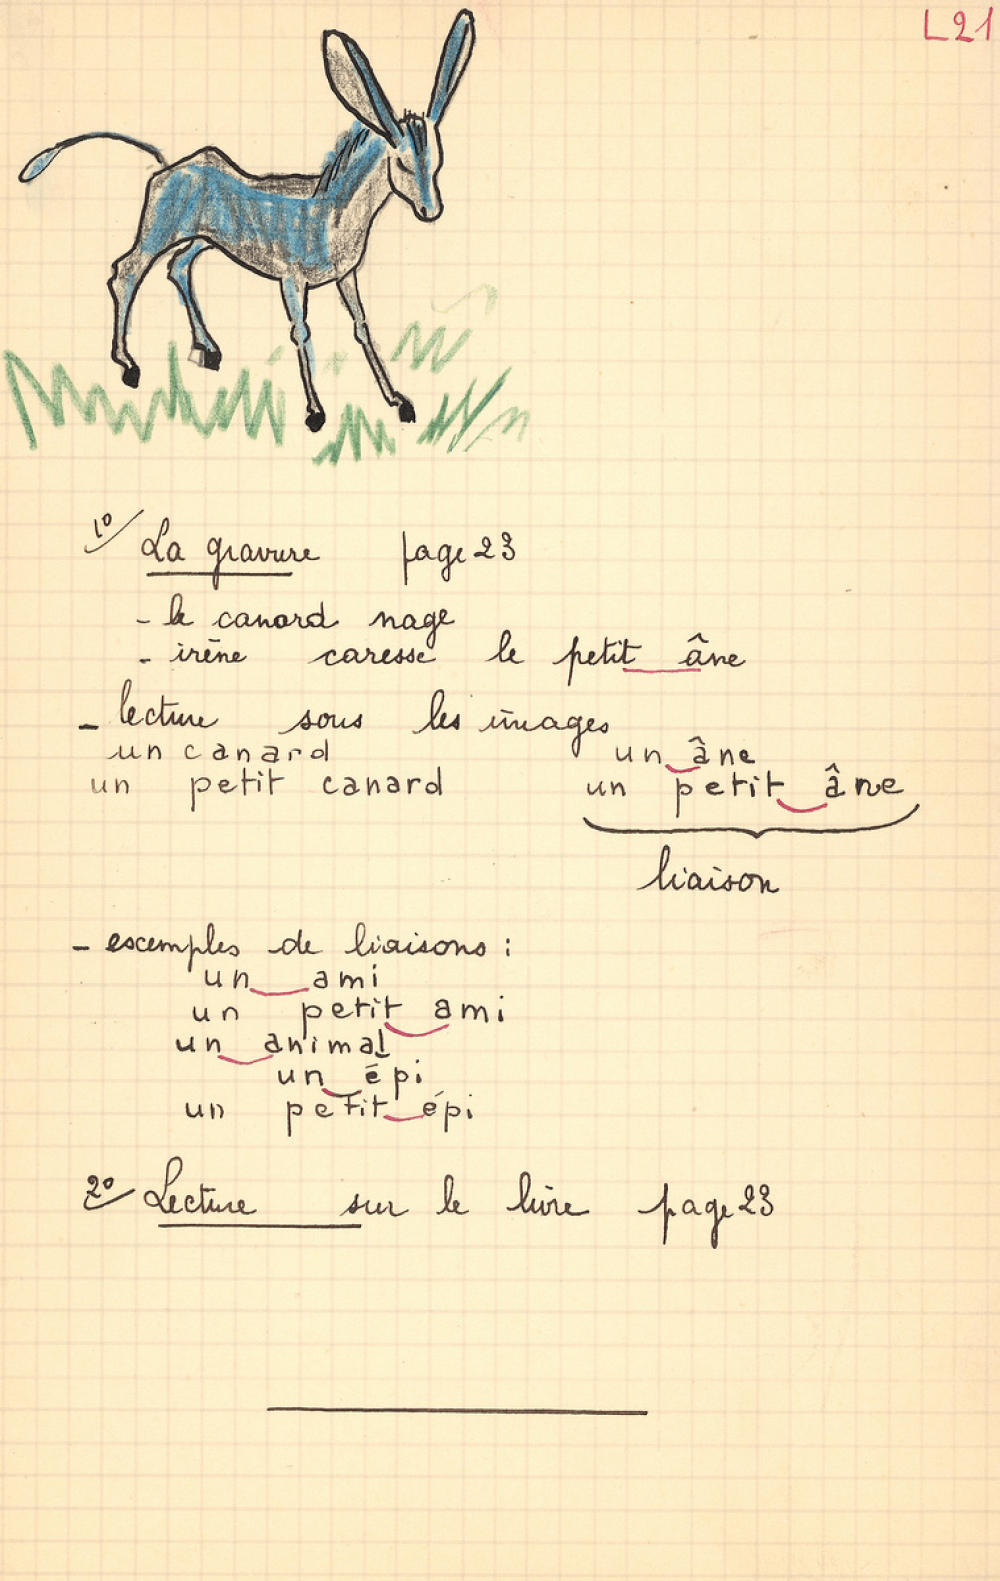 L21
1º/ La gravure page 23
- le canard nage
- irène caresse le petit âne
- lecture sous les images
un canard un âne
un petit canard un petit âne
liaison
- exemples de liaisons :
un ami
un petit ami
un animal
un épi
un petit épi
2º/ Lecture sur le livre page 23